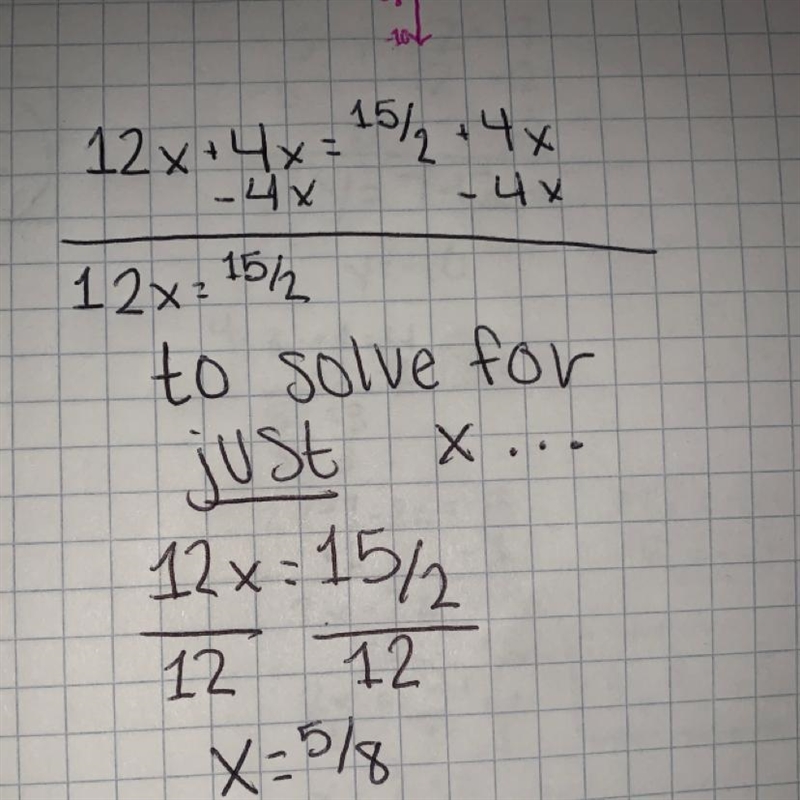 -10
12x + 4x = 15/2 + 4x
-4x -4x
12x = 15/2
to solve for
just x...
12x = 15/2
12 12
x = 5/8